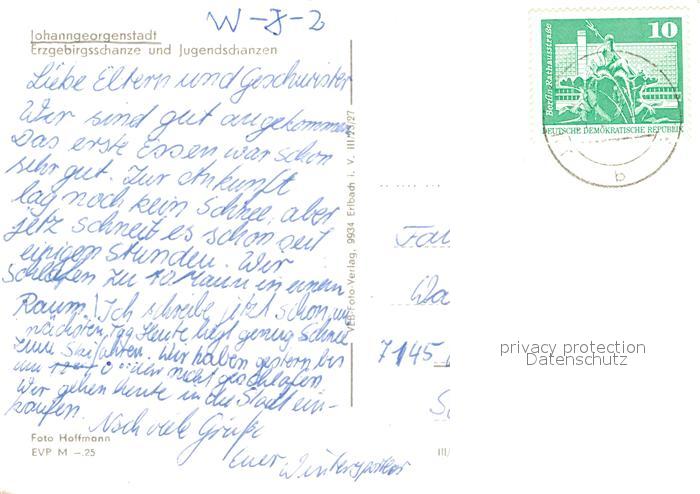 W-8-2
Johanngeorgenstadt
Erzgebirgsschanze und Jugendschanzen
Liebe Eltern und Geschwister
Wir sind gut angekommen
Das erste Essen war schon
sehr gut. Zur Ankunft
lag noch kein Schnee, aber
jetz schneit es schon seit
einigen Stunden. Wir
schlafen zu 10 Mann in einem
Raum! Ich schreibe jetzt schon am
nächsten Tag. Heute liegt genug Schnee
zum Skifahren. Wir haben gestern bis
um Uhr nicht geschlafen
Wir gehen heute in die Stadt ein-
kaufen.
Noch viele Grüße
Euer Wintersportler
Foto Hoffmann
EVP M -.25
VEB-Foto-Verlag, 9934 Erlbach i. V. III/23/27
Fa
7145
III/
10
Berlin-Rathausstraße
DEUTSCHE DEMOKRATISCHE REPUBLIK
b
privacy protection
Datenschutz